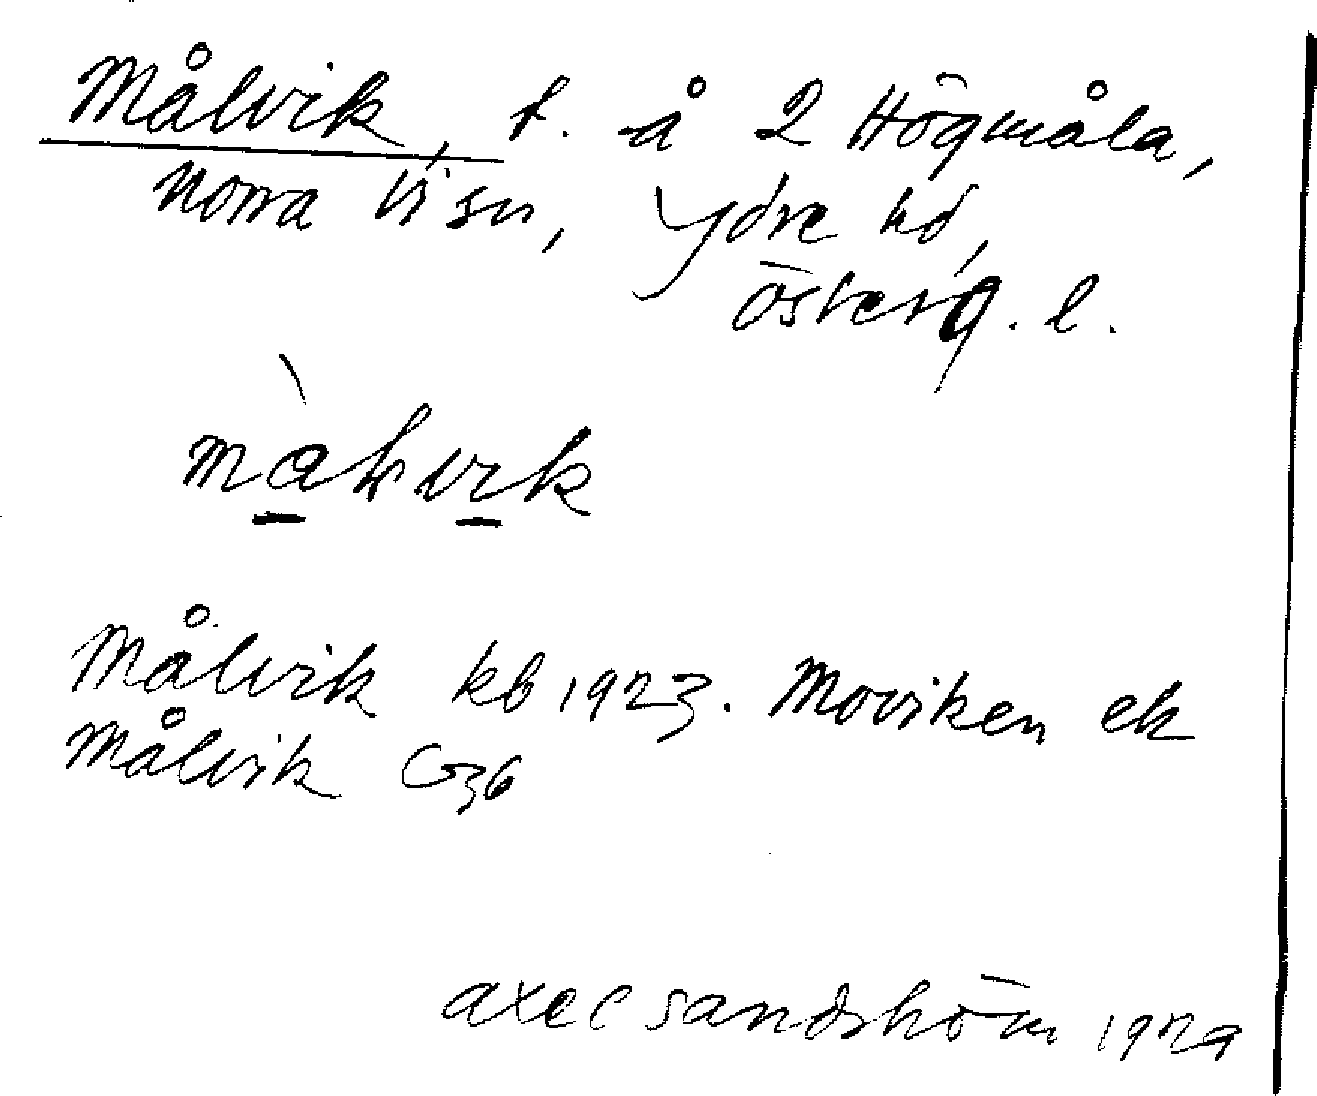 Målvik, t. å 2 Högmåla,
Norra Vi sn, Ydre hd,
Österg. l.
Målvik kb 1923. Moviken ek
Målvik G36
Axel Sandström 1929